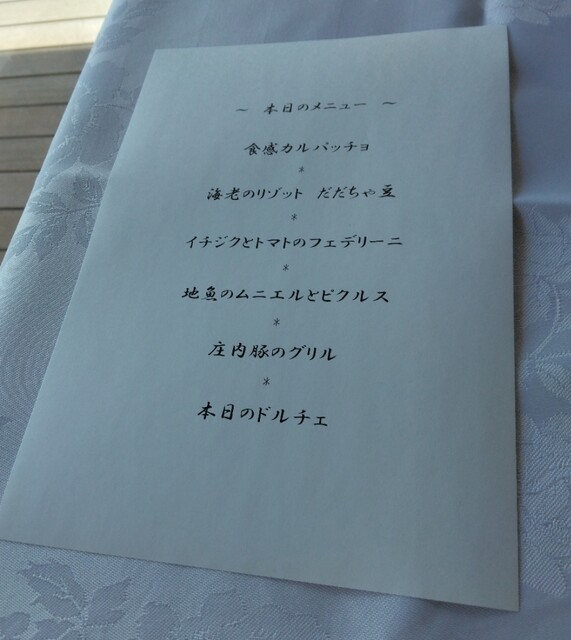 ～ 本日のメニュー ～
食感カルパッチョ
＊
海老のリゾット だだちゃ豆
＊
イチジクとトマトのフェデリーニ
＊
地魚のムニエルとピクルス
＊
庄内豚のグリル
＊
本日のドルチェ